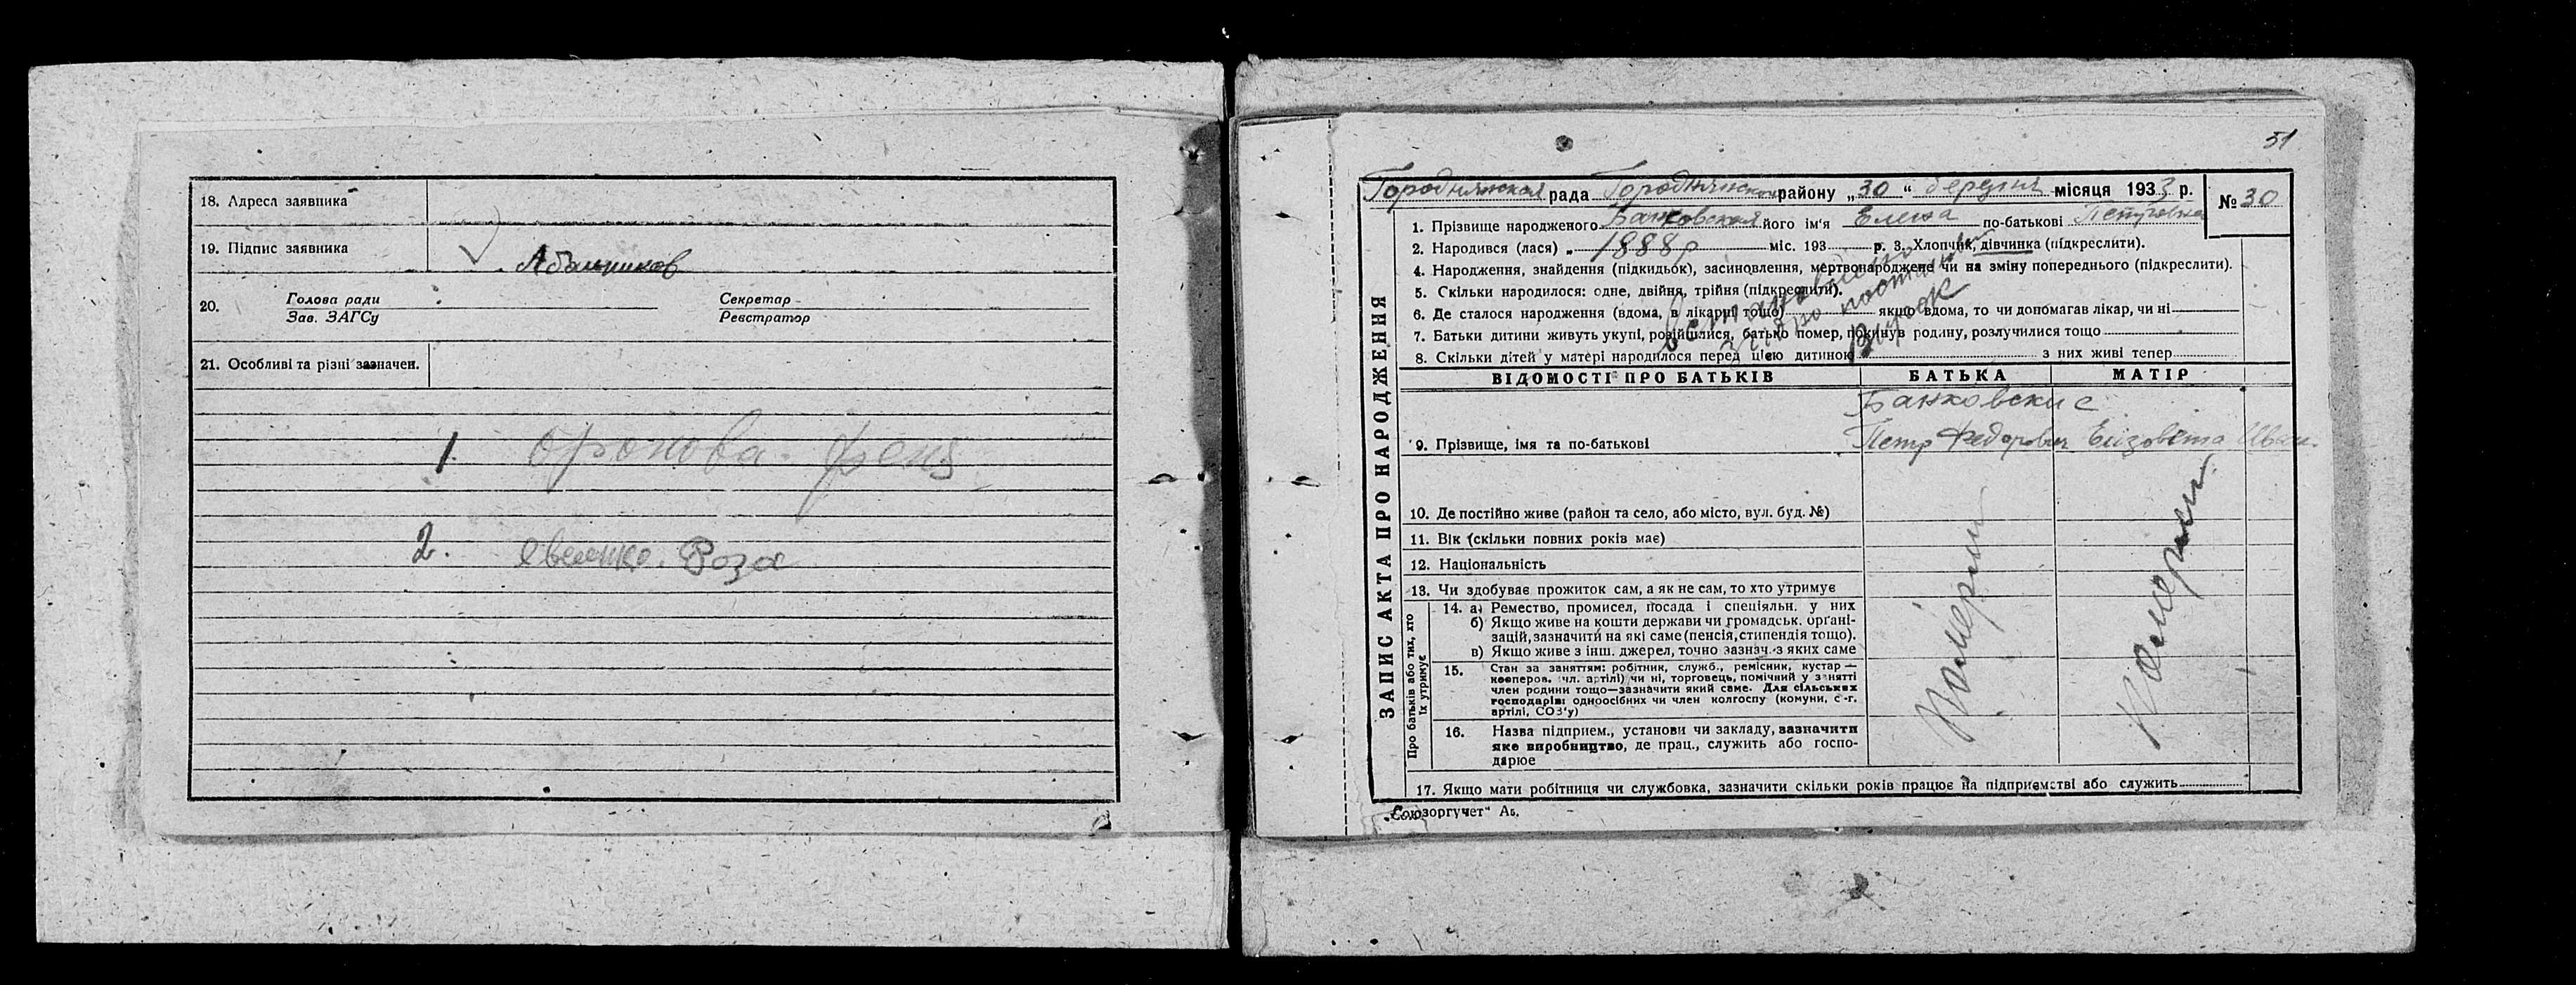 18. Адреса заявника
19. Підпис заявника
20. Голова ради Секретар
Зав. ЗАГСу Реєстратор
21. Особливі та різні зазначен.
1.
2. Роза
51
Городнянская рада Городнянского району „30“ березня місяця 1933 р. № 30
1. Прізвище народженого Банковская його ім'я Елена по-батькові Петровна
2. Народився (лася) „ 1888 р міс. 193 р. 3. Хлопчик, дівчинка (підкреслити).
4. Народження, знайдення (підкидьок), засиновлення, мертвонароджене чи на зміну попереднього (підкреслити).
5. Скільки народилося: одне, двійня, трійня (підкреслити).
6. Де сталося народження (вдома, в лікарні тощо) якщо вдома, то чи допомагав лікар, чи ні
7. Батьки дитини живуть укупі, розійшлися, батько помер, покинув родину, розлучилися тощо
8. Скільки дітей у матері народилося перед цією дитиною з них живі тепер
ЗАПИС АКТА ПРО НАРОДЖЕННЯ
ВІДОМОСТІ ПРО БАТЬКІВ БАТЬКА МАТІР
Банковские
9. Прізвище, імя та по-батькові Петр Федорович Елизовета Иван.
10. Де постійно живе (район та село, або місто, вул. буд. №)
11. Вік (скільки повних років має)
12. Національність
13. Чи здобуває прожиток сам, а як не сам, то хто утримує
Про батьків або тих, хто їх утримує
14. а) Ремество, промисел, посада і спеціяльн. у них
б) Якщо живе на кошти держави чи громадськ. органі-
зацій, зазначити на які саме (пенсія, стипендія тощо).
в) Якщо живе з інш. джерел, точно зазнач. з яких саме
15. Стан за заняттям: робітник, служб., ремісник, кустар —
кооперов. чл. артілі) чи ні, торговець, помічний у занятті
член родини тощо—зазначити який саме. Для сільських
господарів: одноосібних чи член колгоспу (комуни, с.-г.
артілі, СОЗ'у)
16. Назва підприєм., установи чи закладу, зазначити
яке виробництво, де прац., служить або госпо-
дарює
Померли
Померли
17. Якщо мати робітниця чи службовка, зазначити скільки років працює на підприємстві або служить
„Союзоргучет“